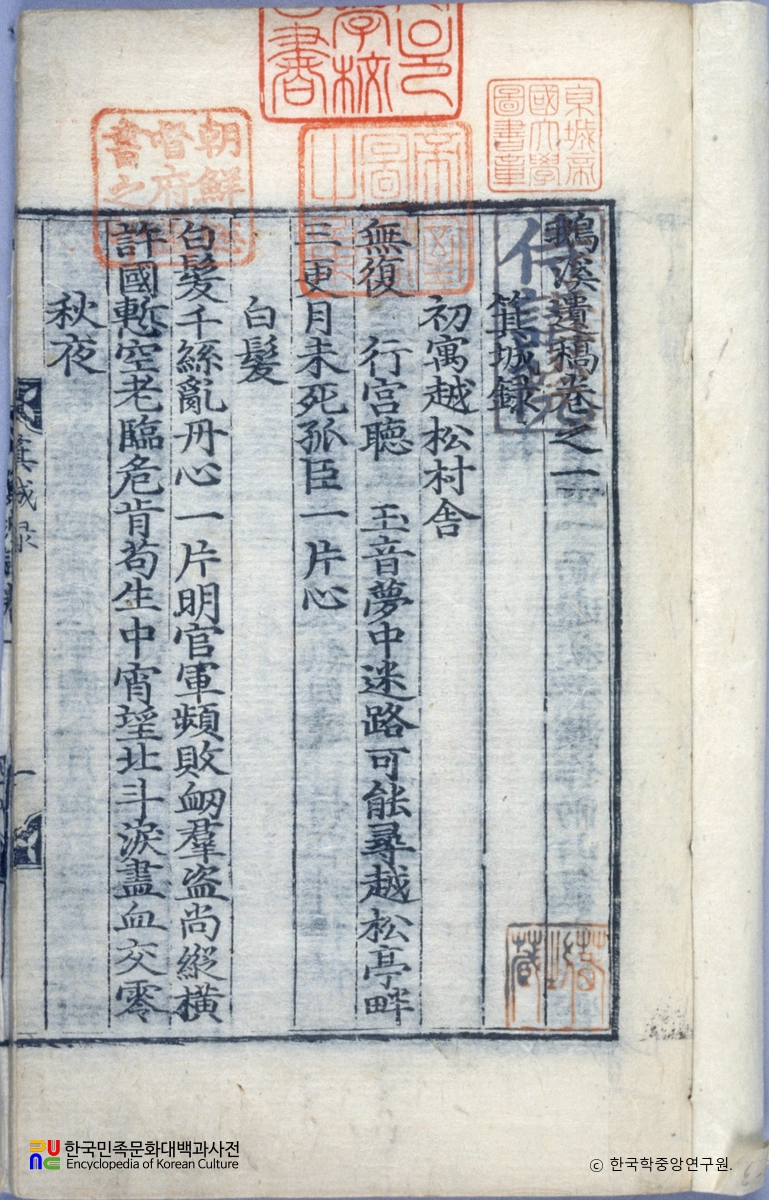 鵝溪遺稿卷之一
箕城錄
初寓越松村舍
無復 行宮聽 玉音夢中迷路可能尋越松亭畔
三更月未死孤臣一片心
白髮
白髮千絲亂丹心一片明官軍頻敗衂羣盜尚縱橫
許國慙空老臨危肯苟生中宵望北斗淚盡血交零
秋夜
箕城录
京城帝
國大學
圖書章
朝鮮總
督府圖
書之印
한국민족문화대백과사전
Encyclopedia of Korean Culture
© 한국학중앙연구원.